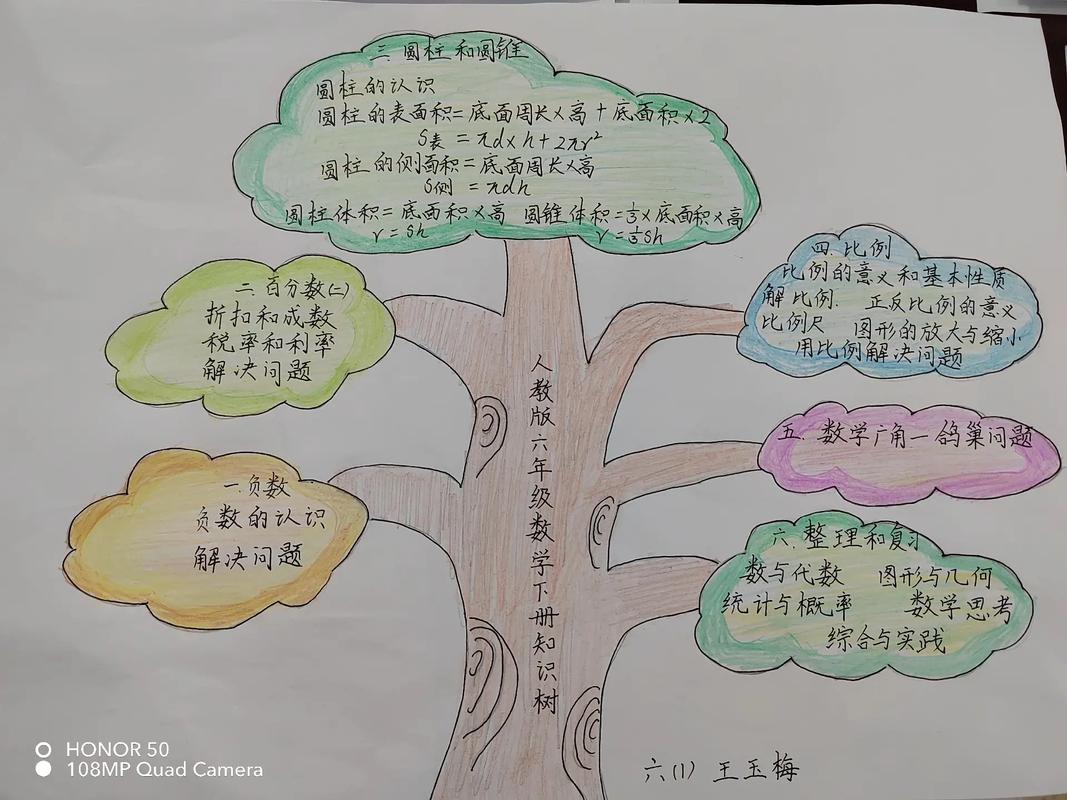 三 圆柱和圆锥
圆柱的认识
圆柱的表面积=底面周长×高+底面积×2
S表 =πd×h+2πr²
圆柱的侧面积=底面周长×高
S侧 =πdh
圆柱体积=底面积×高 圆锥体积=⅓×底面积×高
v=Sh v=⅓Sh
二.百分数(二)
折扣和成数
税率和利率
解决问题
四.比例
比例的意义和基本性质
解比例. 正反比例的意义
比例尺 图形的放大与缩小
用比例解决问题
人教版六年级数学下册知识树
五.数学广角一鸽巢问题
一.负数
负数的认识
解决问题
六.整理和复习
数与代数 图形与几何
统计与概率 数学思考
综合与实践
六(1) 王玉梅
HONOR 50
108MP Quad Camera